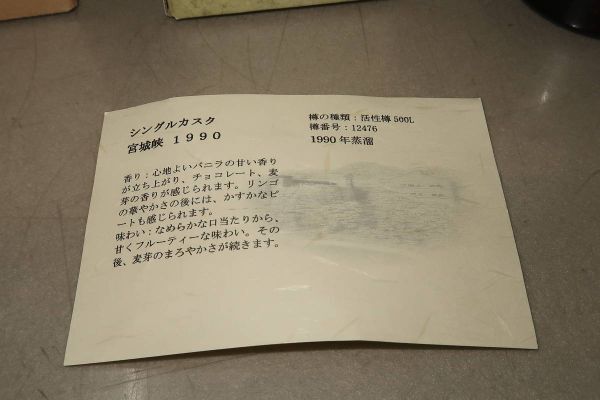 シングルカスク
宮城峡 1990
香り：心地よいバニラの甘い香り
が立ち上がり、チョコレート、麦
芽の香りが感じられます。リンゴ
の華やかさの後には、かすかなピ
ートも感じられます。
味わい：なめらかな口当たりから、
甘くフルーティーな味わい。その
後、麦芽のまろやかさが続きます。
樽の種類：活性樽 500L
樽番号：12476
1990 年蒸溜